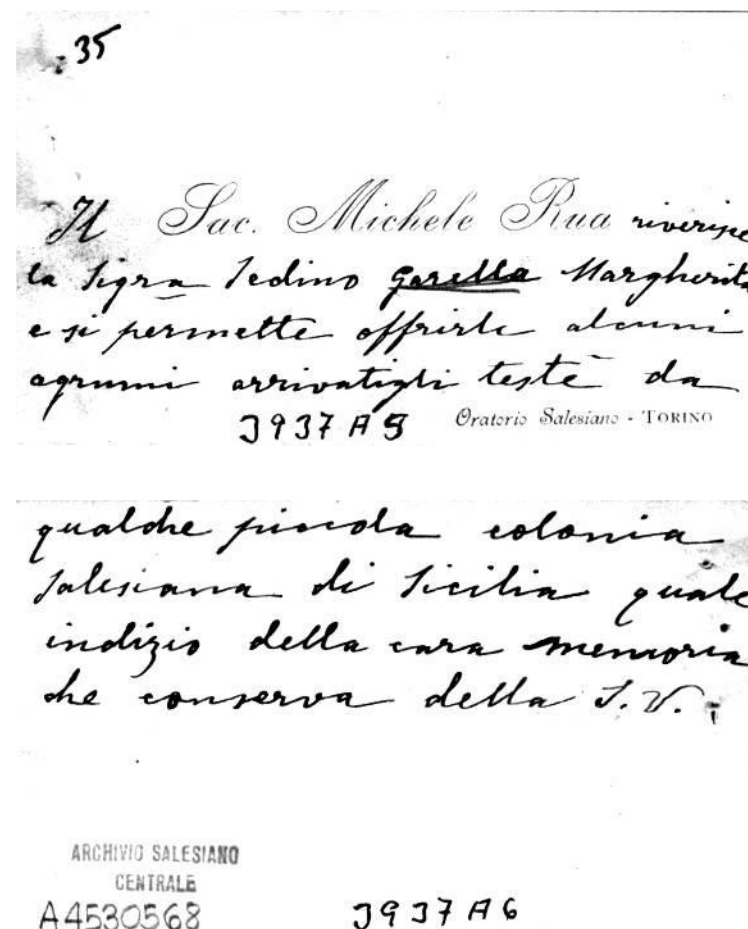 35
Il Sac. Michele Rua riverisce
la Sigra Sedino Garella Margherita
e si permette offrirle alcuni
agrumi arrivatigli testè da
3937 A5
Oratorio Salesiano - TORINO
qualche piccola colonia
Salesiana di Sicilia quale
indizio della cara memoria
che conserva della S. V.
ARCHIVIO SALESIANO
CENTRALE
A4530568
3937 A6